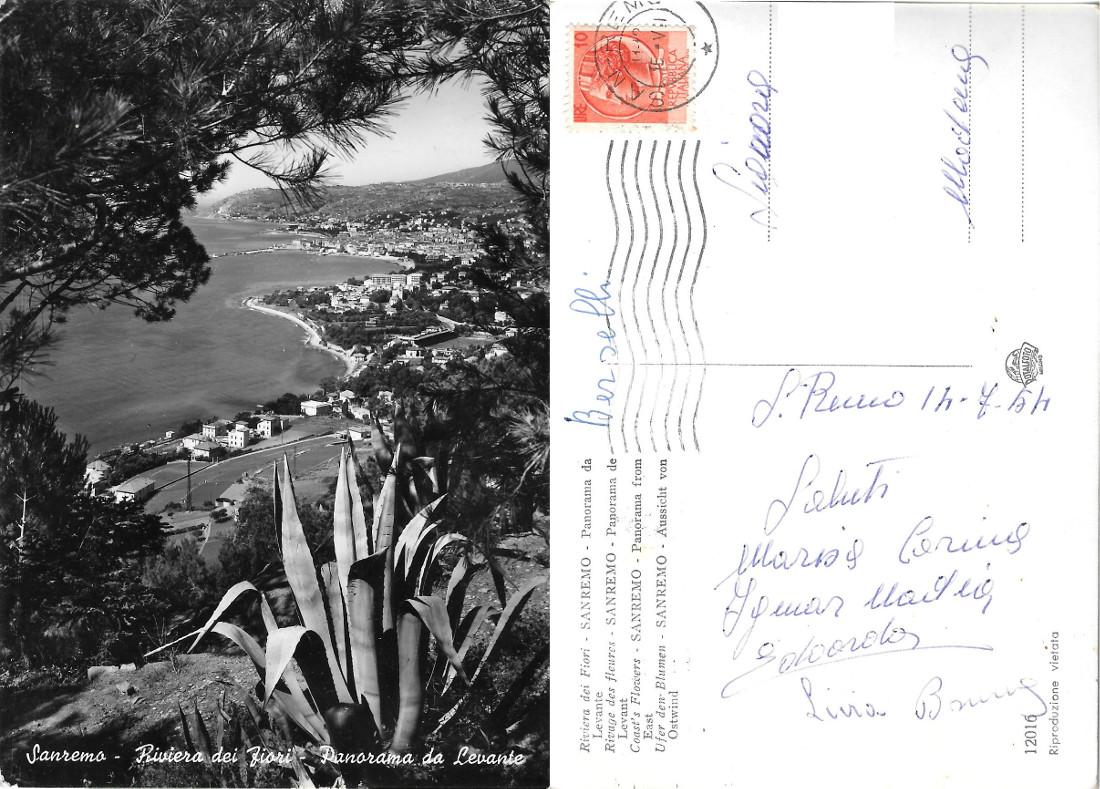 Sanremo - Riviera dei Fiori - Panorama da Levante
LIRE 10
REPUBBLICA
ITALIANA
Signora
Modena
Berselli
S. Remo 14-7-54
Saluti
Marisa Corina
Edoardo
Livia Bruna
Riviera dei Fiori - SANREMO - Panorama da
Levante
Rivage des fleures - SANREMO - Panorama de
Levant
Coast's Flowers - SANREMO - Panorama from
East
Ufer den Blumen - SANREMO - Aussicht von
Ostwind
12016
Riproduzione vietata